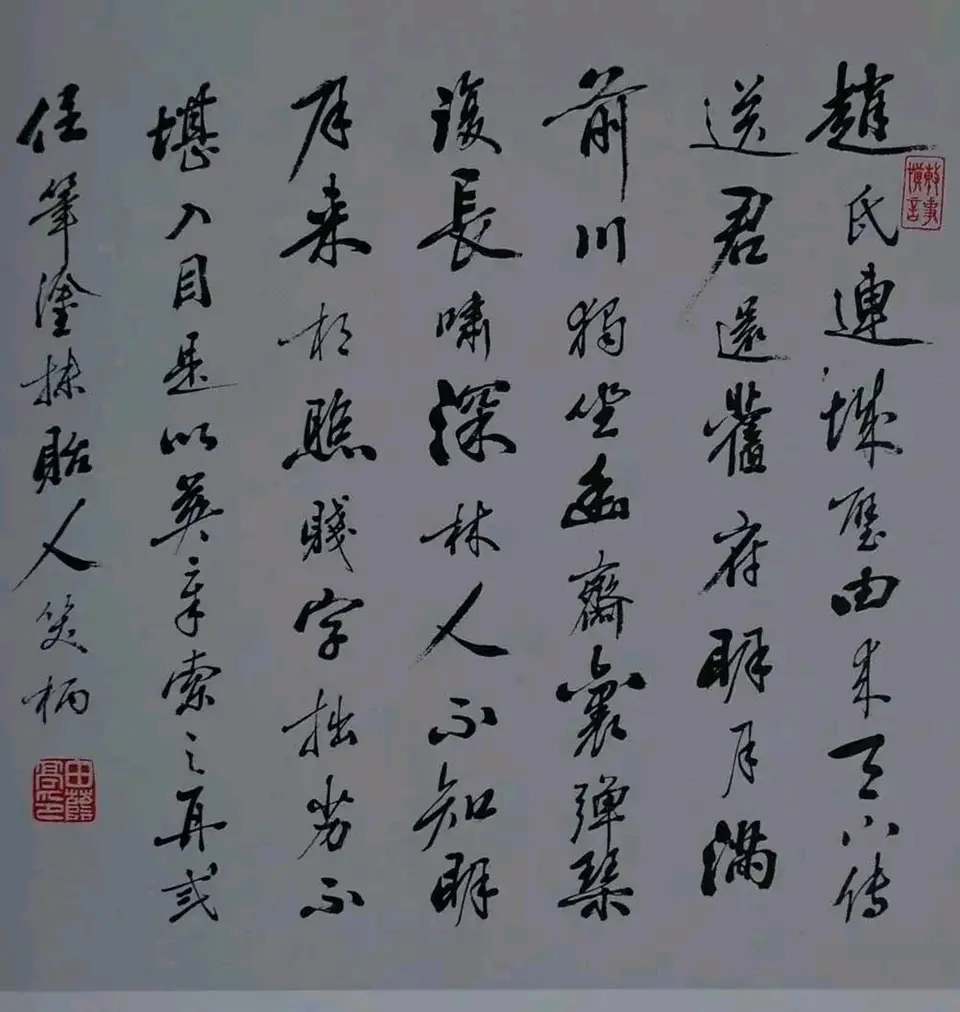 趙氏連城璧由來天下傳
送君還舊府明月滿
前川獨坐幽齋裏彈琴
復長嘯深林人不知明
月來相照賤字拙劣不
堪入目是以英章索之再
任筆塗抹貽人笑柄